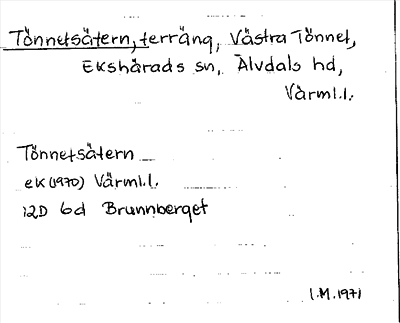 Tönnetsätern, terräng, Västra Tönnet,
Ekshärads sn, Älvdals hd,
Värml.l.
Tönnetsätern
ek (1970) Värml.l.
12D 6d Brunnberget
I.M. 1971